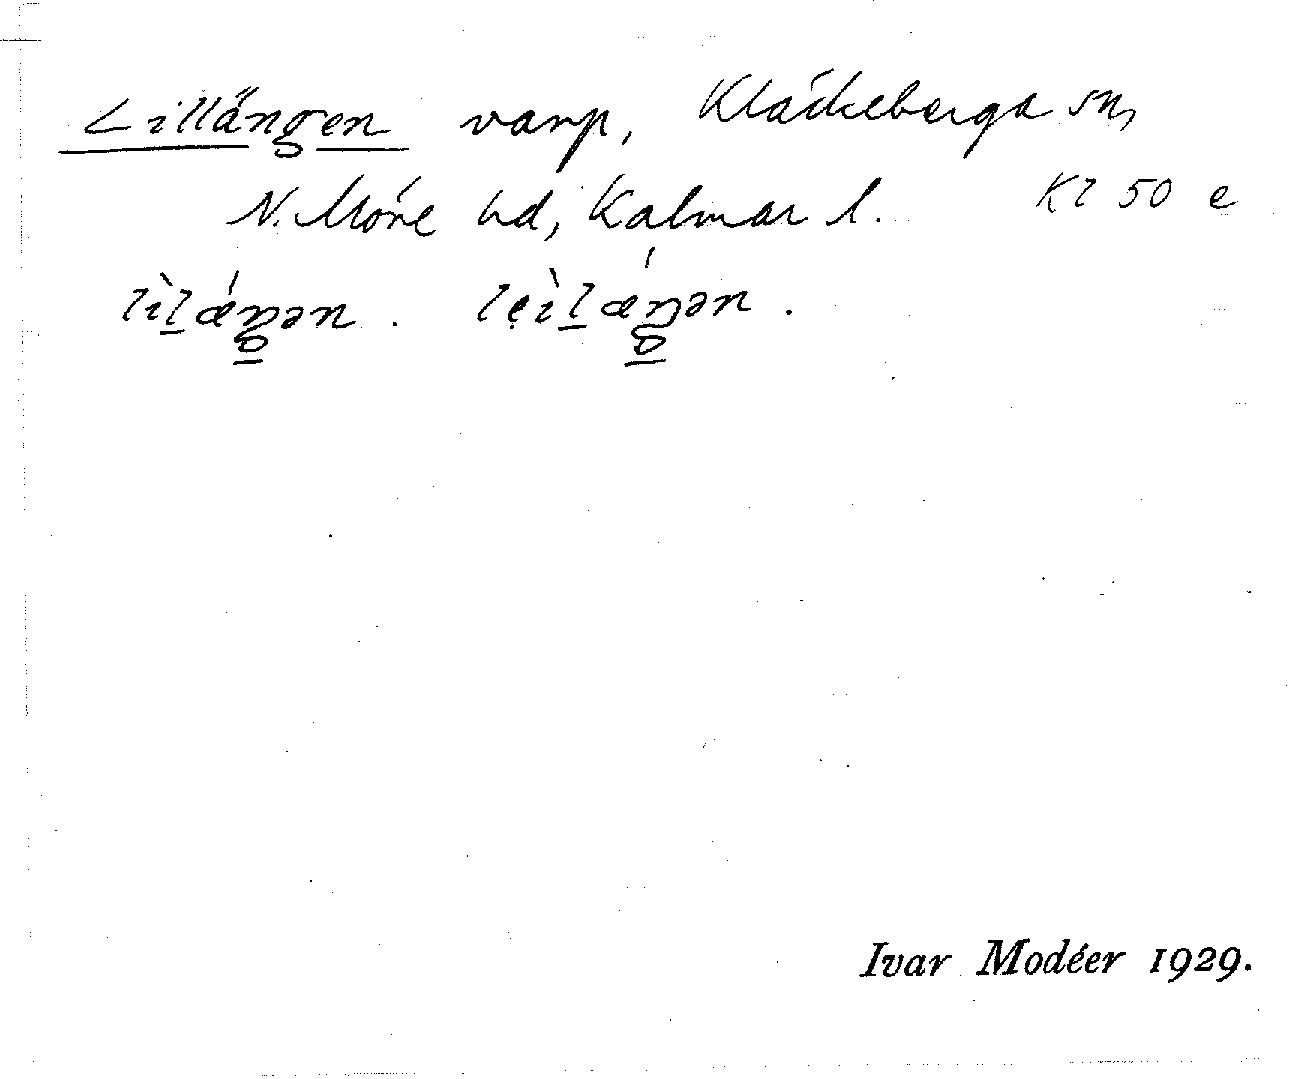 Lillängen varp, Kläckeberga sn,
N. Möre hd, Kalmar l. Kl 50 e
lìl̲ǽŋ̲ən. lẹìl̲ǽŋ̲ən.
Ivar Modéer 1929.